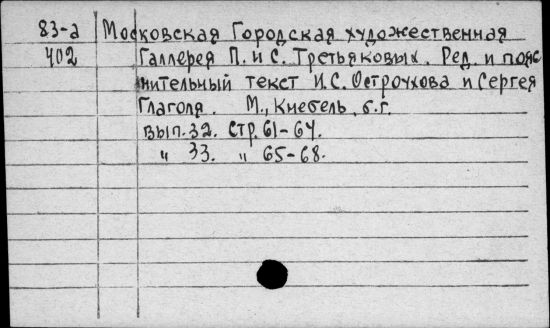 83-а Московская Городская художественная
402 Галлерея П. и С. Третьяковых. Ред. и пояс
нительный текст И.С. Остроухова и Сергея
Глаголя. М., Кнебель, б.г.
Вып. 32. Стр. 61-64.
" 33. " 65-68.